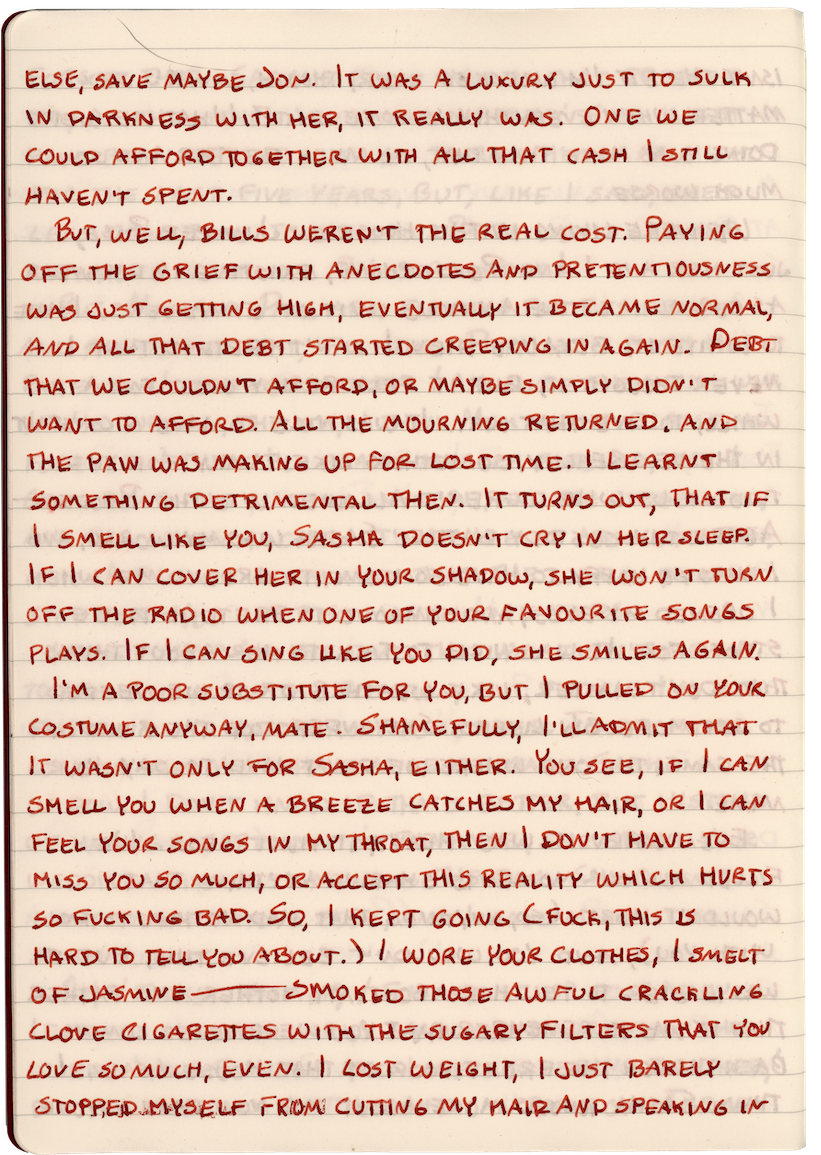 ELSE, SAVE MAYBE JON. IT WAS A LUXURY JUST TO SULK
IN DARKNESS WITH HER, IT REALLY WAS. ONE WE
COULD AFFORD TOGETHER WITH ALL THAT CASH I STILL
HAVEN'T SPENT.
BUT, WELL, BILLS WEREN'T THE REAL COST. PAYING
OFF THE GRIEF WITH ANECDOTES AND PRETENTIOUSNESS
WAS JUST GETTING HIGH, EVENTUALLY IT BECAME NORMAL,
AND ALL THAT DEBT STARTED CREEPING IN AGAIN. DEBT
THAT WE COULDN'T AFFORD, OR MAYBE SIMPLY DIDN'T
WANT TO AFFORD. ALL THE MOURNING RETURNED. AND
THE PAW WAS MAKING UP FOR LOST TIME. I LEARNT
SOMETHING DETRIMENTAL THEN. IT TURNS OUT, THAT IF
I SMELL LIKE YOU, SASHA DOESN'T CRY IN HER SLEEP.
IF I CAN COVER HER IN YOUR SHADOW, SHE WON'T TURN
OFF THE RADIO WHEN ONE OF YOUR FAVOURITE SONGS
PLAYS. IF I CAN SING LIKE YOU DID, SHE SMILES AGAIN.
I'M A POOR SUBSTITUTE FOR YOU, BUT I PULLED ON YOUR
COSTUME ANYWAY, MATE. SHAMEFULLY, I'LL ADMIT THAT
IT WASN'T ONLY FOR SASHA, EITHER. YOU SEE, IF I CAN
SMELL YOU WHEN A BREEZE CATCHES MY HAIR, OR I CAN
FEEL YOUR SONGS IN MY THROAT, THEN I DON'T HAVE TO
MISS YOU SO MUCH, OR ACCEPT THIS REALITY WHICH HURTS
SO FUCKING BAD. SO, I KEPT GOING (FUCK, THIS IS
HARD TO TELL YOU ABOUT.) I WORE YOUR CLOTHES, I SMELT
OF JASMINE — SMOKED THOSE AWFUL CRACKLING
CLOVE CIGARETTES WITH THE SUGARY FILTERS THAT YOU
LOVE SO MUCH, EVEN. I LOST WEIGHT, I JUST BARELY
STOPPED MYSELF FROM CUTTING MY HAIR AND SPEAKING IN